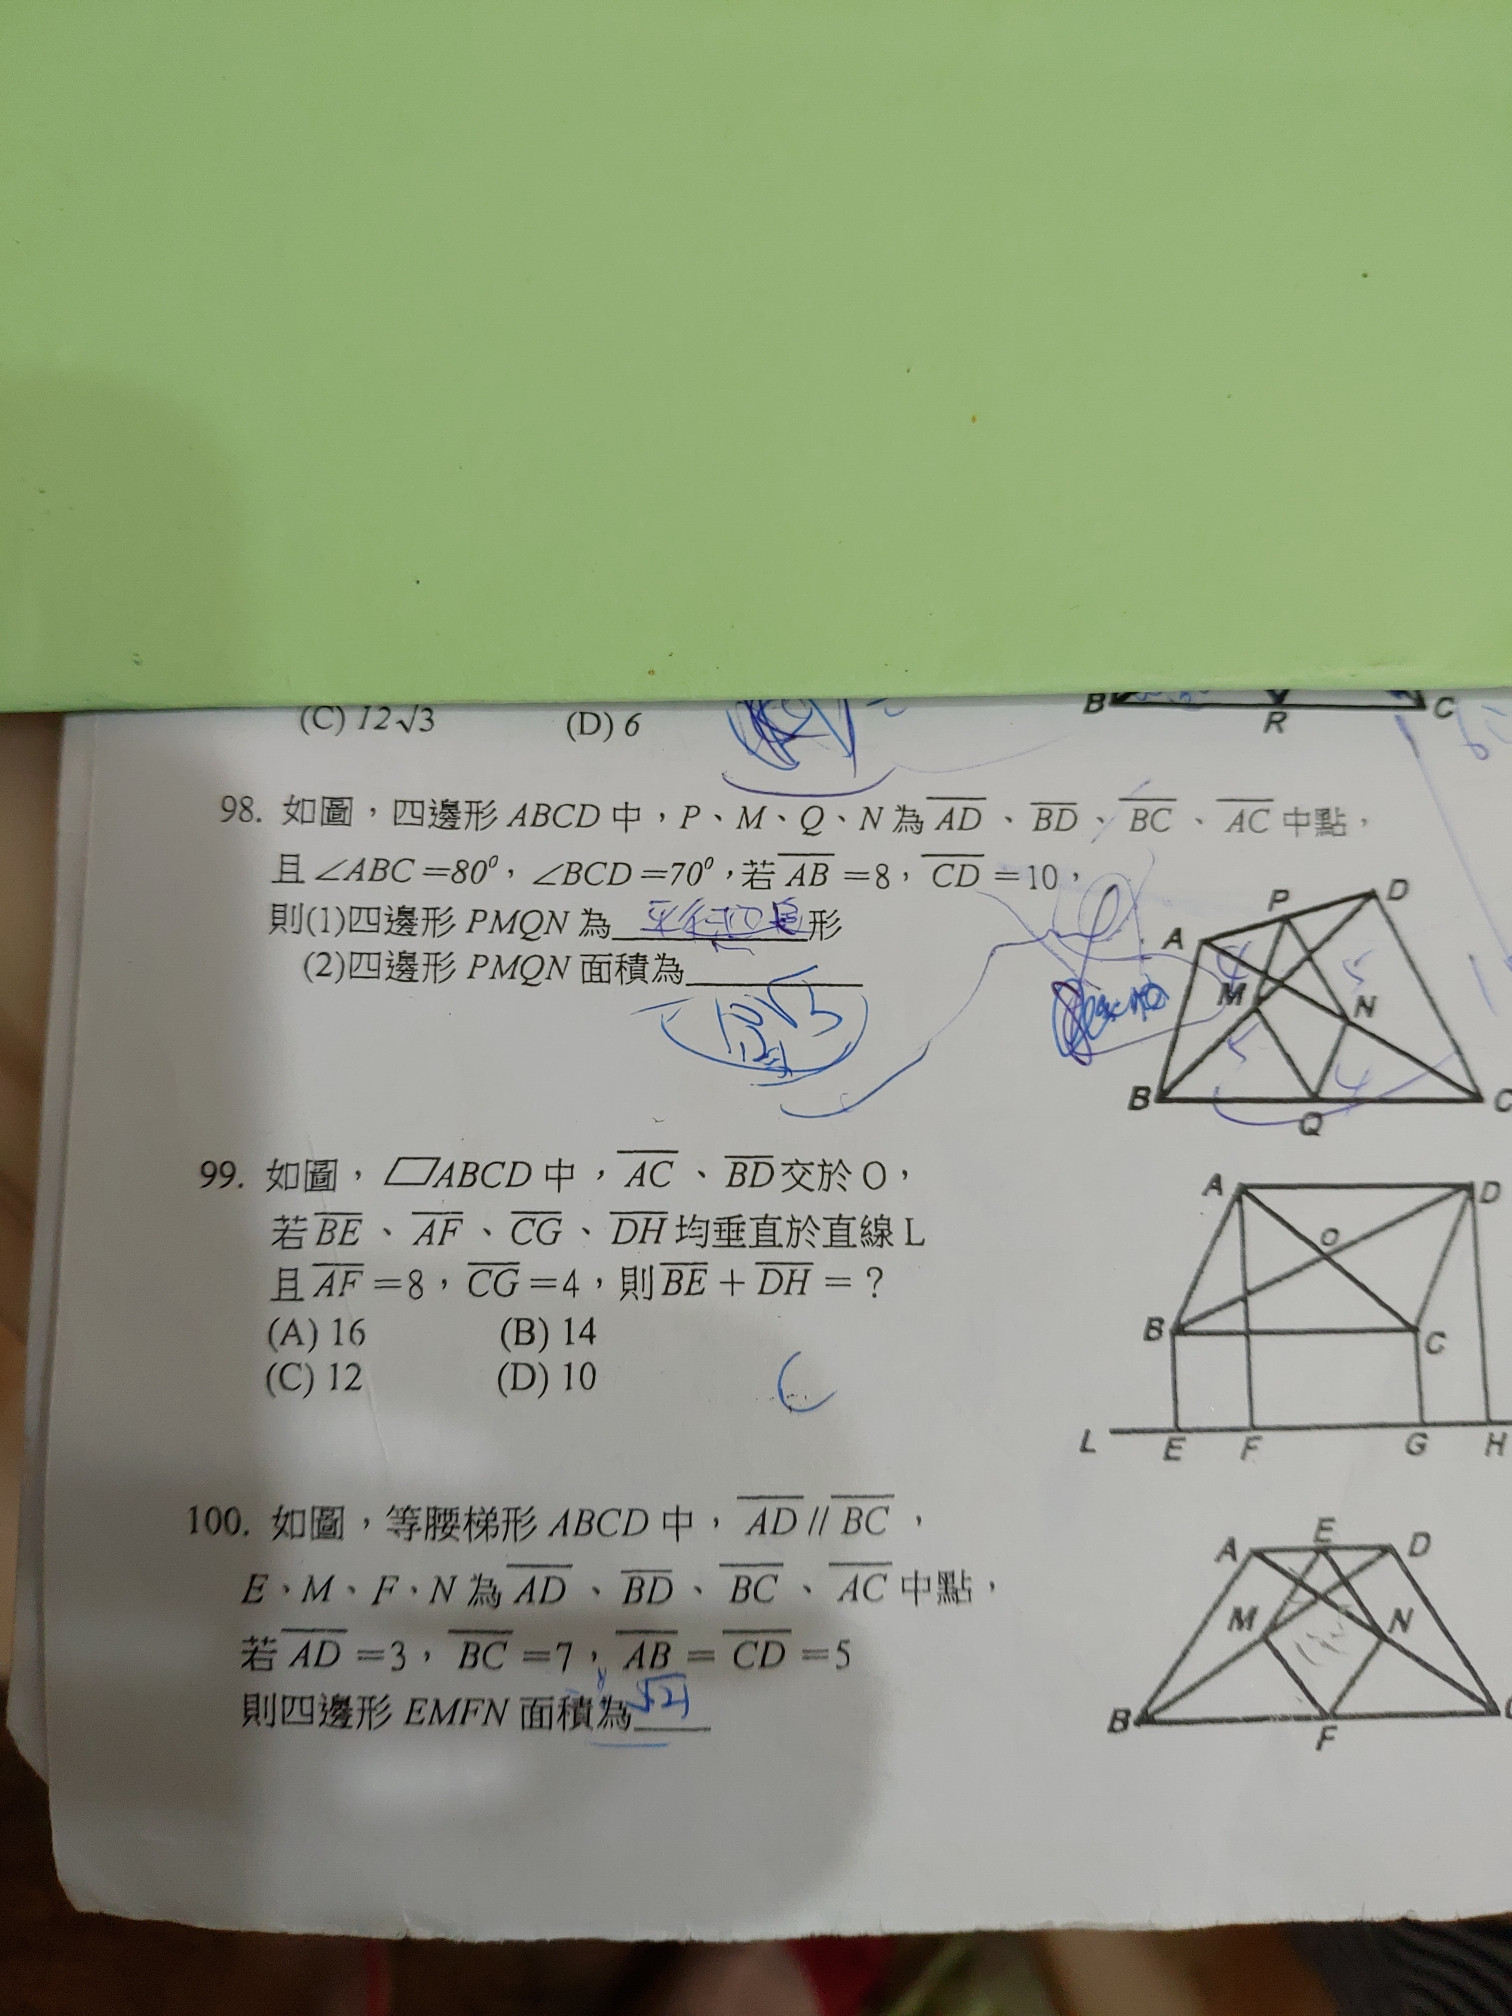 (C) 12√3 (D) 6
B R C
98. 如圖，四邊形 ABCD 中，P、M、Q、N 為 AD、BD、BC、AC 中點，
且 ∠ABC=80⁰，∠BCD=70⁰，若 AB=8，CD=10，
則(1)四邊形 PMQN 為 平行四邊 形
(2)四邊形 PMQN 面積為
A P D M N B Q C
4 5 5 4
99. 如圖，▱ABCD 中，AC、BD交於 O，
若 BE、AF、CG、DH 均垂直於直線 L
且 AF=8，CG=4，則 BE+DH=？
(A) 16 (B) 14
(C) 12 (D) 10
C
A D O B C L E F G H
100. 如圖，等腰梯形 ABCD 中，AD // BC，
E、M、F、N 為 AD、BD、BC、AC 中點，
若 AD=3，BC=7，AB=CD=5
則四邊形 EMFN 面積為 √21
A E D M N B F